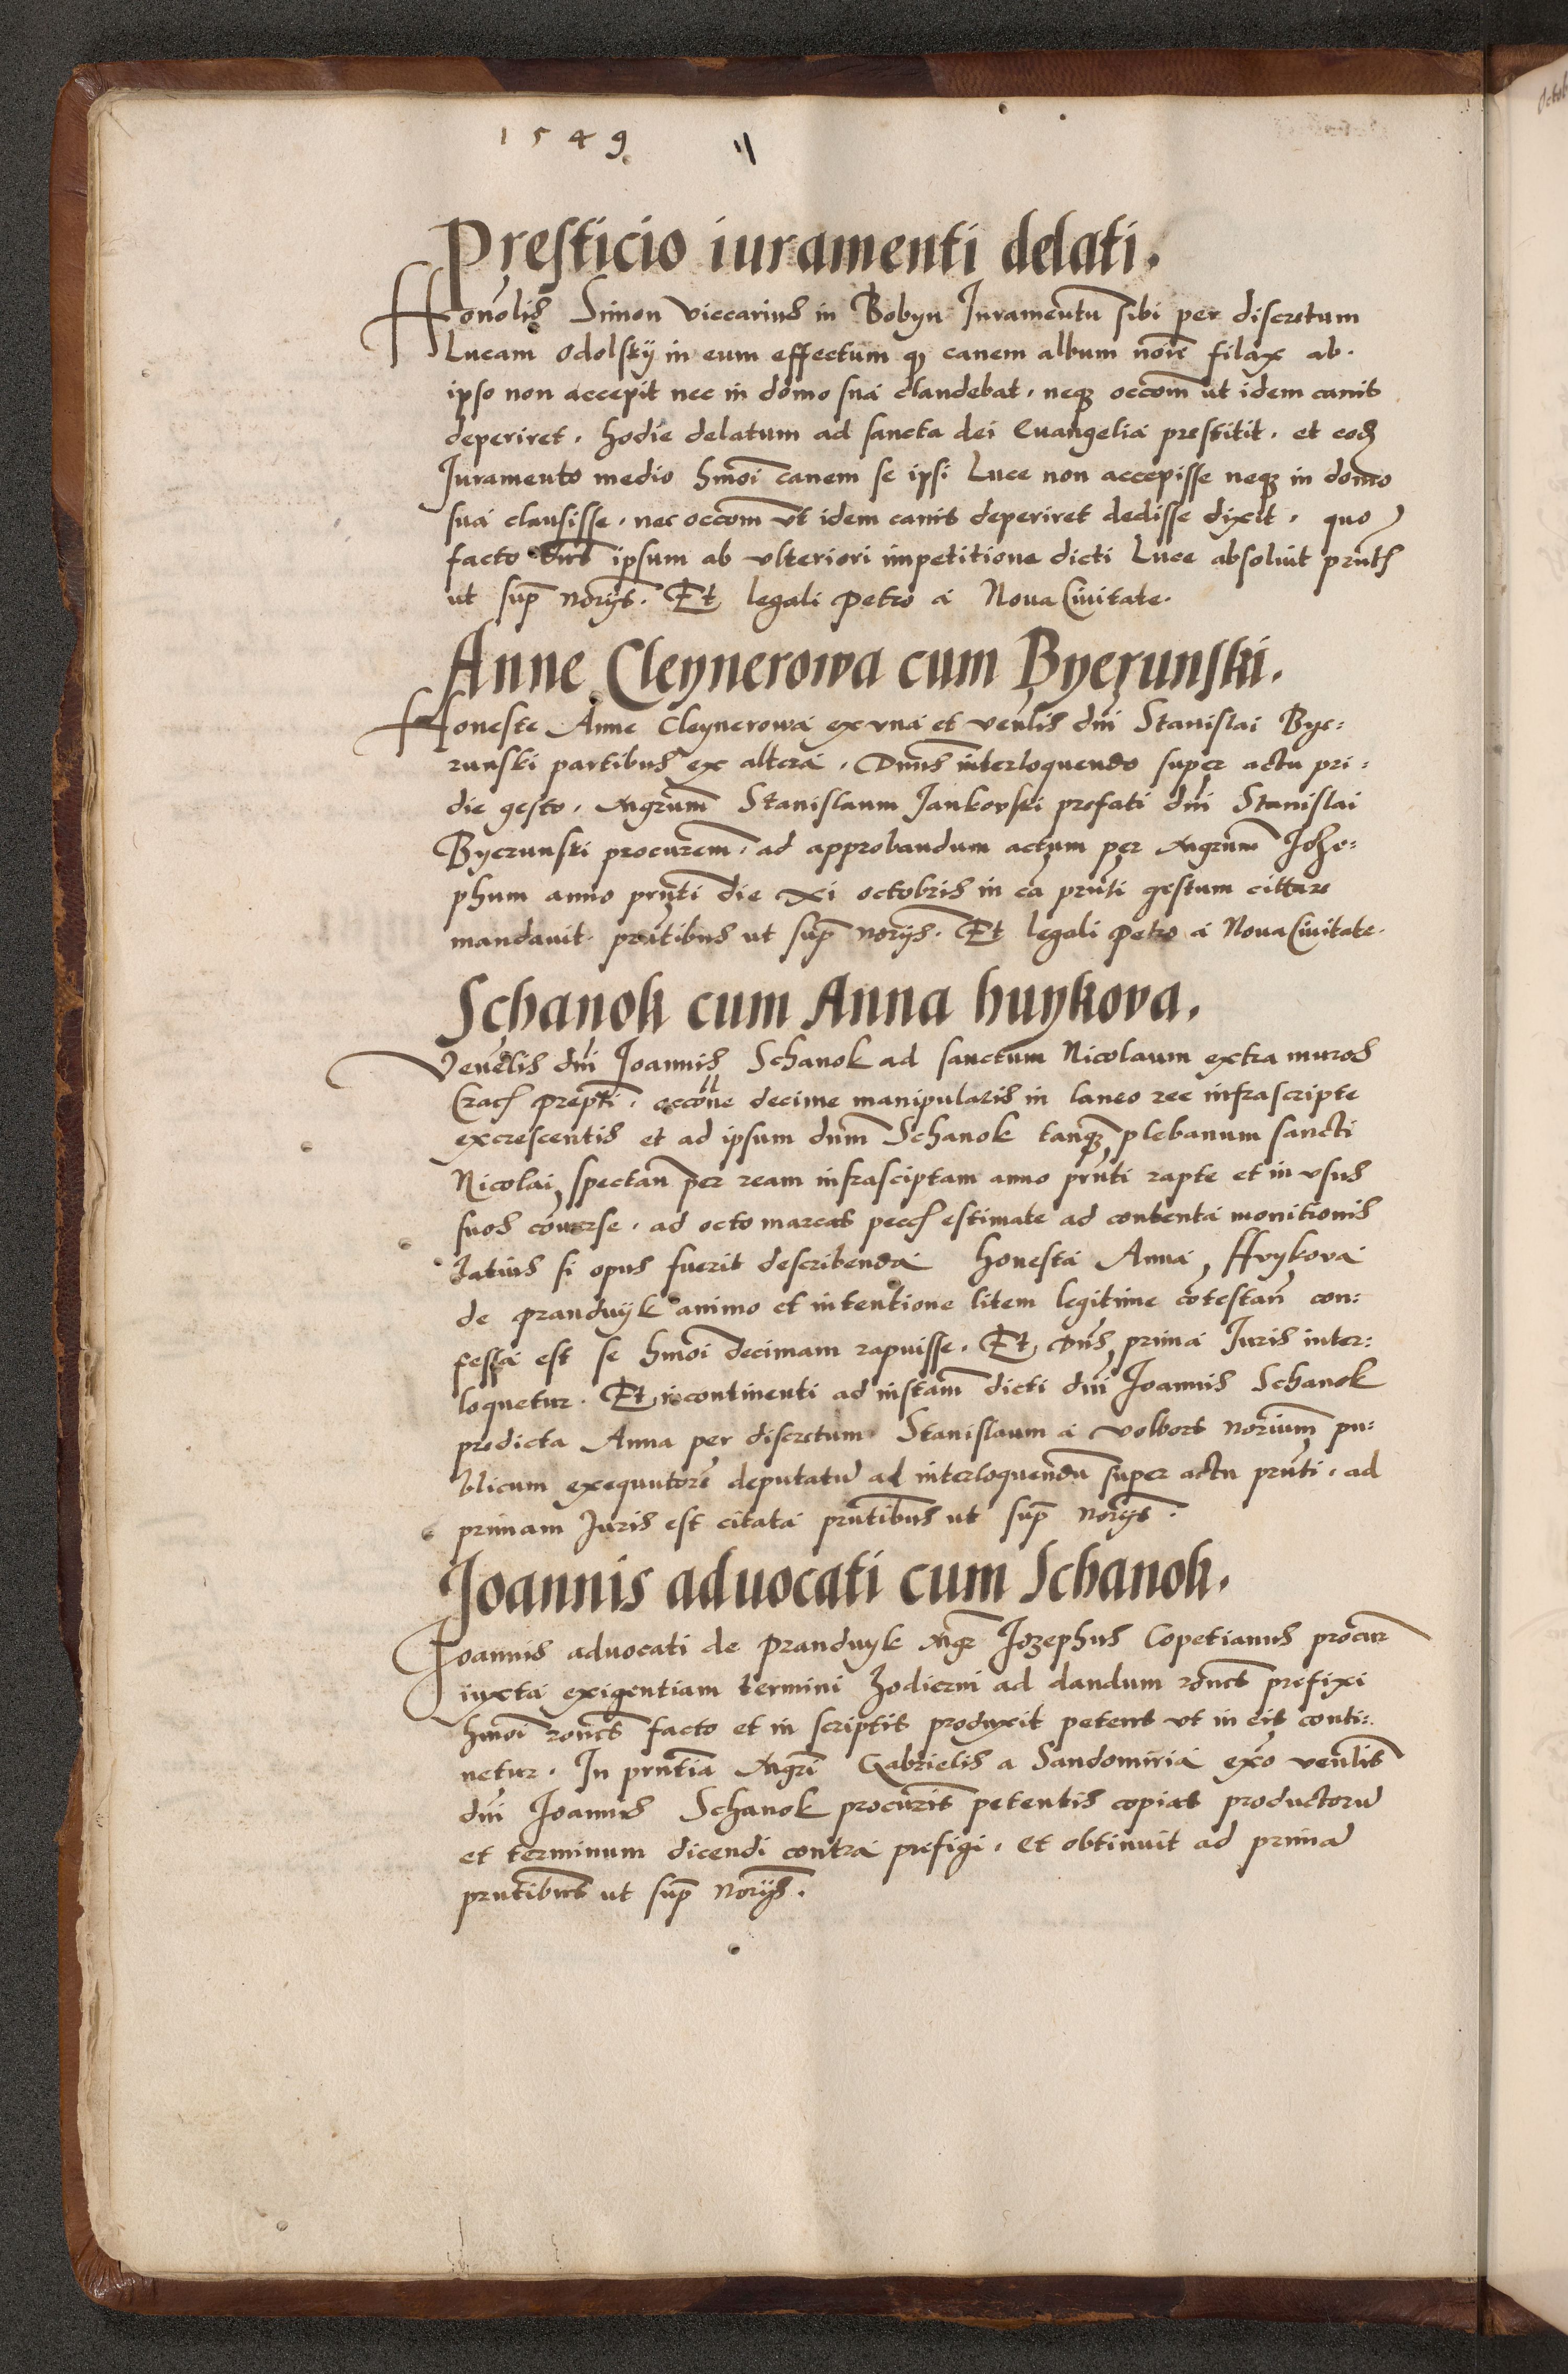 1549
Presticio iuramenti delati.
Honõlis Simon viccarius in Bobyn Iuramentũ sibi per discretum
Lucam Odolskÿ in eum effectum qꝫ canem album noĩe filax ab.
ipso non accepit nec in domo sua claudebat, neqꝫ occoñm ut idem canis
deperiret. hodie delatum ad sancta dei Euangelia prestitit. et eodꝫ
Iuramento medio hmõi canem se ipsi Luce non accepisse neqꝫ in domo
sua clausisse, nec occoñm vt idem canis deperiret dedisse dixit. quo
facto Dñs ipsum ab vlteriori impetitione dicti Luce absoluit prñtꝫ
ut sup̃ norÿs. Et legali Petro a Noua Ciuitate.
Anne Cleynerowa cum Byerunski.
Honeste Anne Cleynerowa ex vna et veñlis dñi Stanislai Bye:
runski partibus ex altera. Dñus interloquendo super actu pri:
die gesto, Mgrum̃ Stanislaum Jankovski prefati dñi Stanislai
Byerunski procurem̃, ad approbandum actum per Mgrum̃ Joze:
phum anno prñti die xi octobris in cã prñti gestum cittare
mandauit. prñtibus ut sup̃ norÿs. Et legali Petro a Noua Ciuitate.
Schanok cum Anna huykova.
Veñelis dñi Joannis Schanok ad sanctum Nicolaum extra muros
Cracꝫ prepti. occõne decime manipularis in laneo ree infrascripte
excrescentis et ad ipsum dnm̃ Schanok tanqꝫ plebanum sancti
Nicolai spectan̄ per ream infrasciptam anno prñti rapte et in vsus
suos cõuerse, ad octo marcas peccꝫ estimate ad contenta monitionis
latius si opus fuerit describenda honesta Anna Hvykova
de Prandvyk animo et intentione litem legitime cõtestan̄ con:
fessa est se hmõi decimam rapuisse. Et Dñs prima Iuris inter:
loquetur. Et incontinenti ad instam̃ dicti dñi Joannis Schanok
predicta Anna per discretum Stanislaum a Volbors norium̃ pu:
blicum exequutorẽ deputatũ ad interloquendũ super actu prñti, ad
primam Juris est citata prñtibus ut sup̃ norÿs.
Joannis aduocati cum Schanok.
Joannis aduocati de Prandvyk Mgr̃ Jozephus Copetianus procur̃
iuxta exigentiam termini hodierni ad dandum roñes prefixi
hmõi roñes facto et in scriptis produxit petens vt in eis conti:
netur. In prñtia Mgri Gabrielis a Sandomiria exõ veñlis
dñi Joannis Schanok procuris̃ petentis copias productorũ
et terminum dicendi contra prefigi. Et obtinuit ad primã
prñtibus ut sup̃ norÿs.